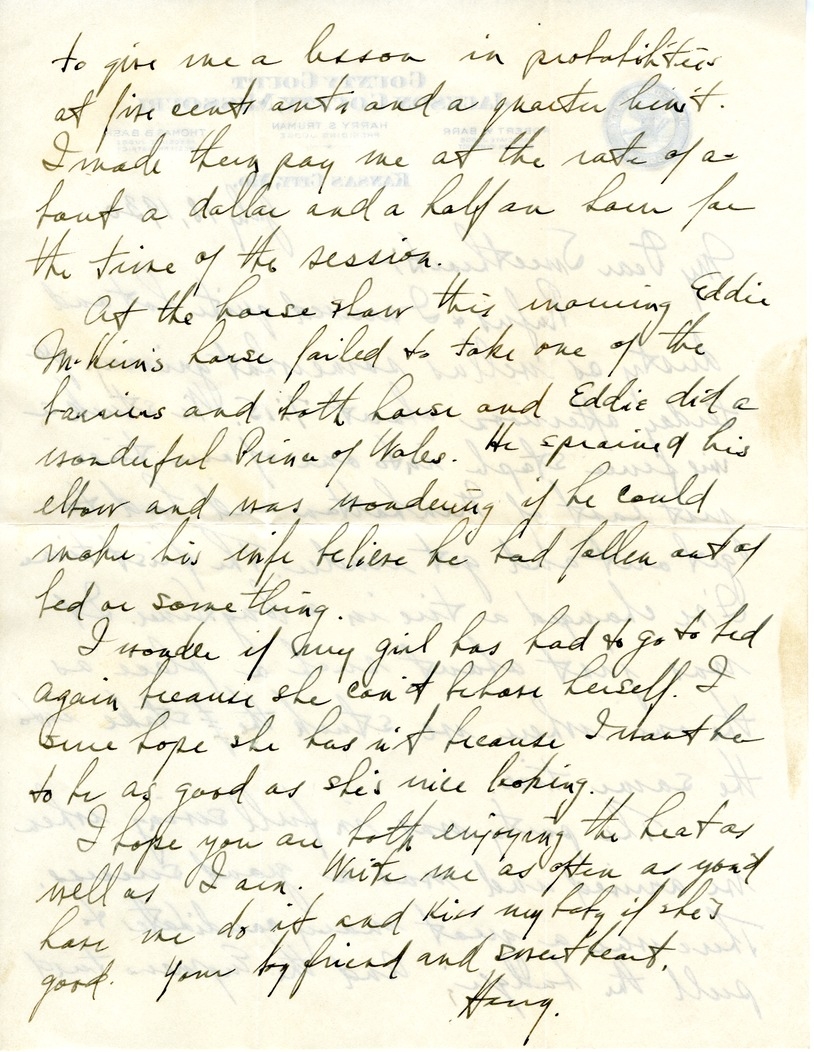 to give me a lesson in probabilities
at five cent ante and a quarter limit.
I made them pay me at the rate of a=
bout a dollar and a half an hour for
the time of the session.
At the horse show this morning Eddie
McKim's horse failed to take one of the
barriers and both horse and Eddie did a
wonderful Prince of Wales. He sprained his
elbow and was wondering if he could
make his wife believe he had fallen out of
bed or something.
I wonder if my girl has had to go to bed
again because she can't behave herself. I
sure hope she hasn't because I want her
to be as good as she's nice looking.
I hope you are both enjoying the heat as
well as I am. Write me as often as you'd
have me do it and kiss my baby if she's
good. Your boy friend and sweetheart,
Harry.